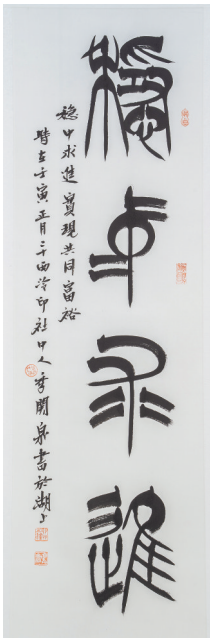 穏中求進
穏中求進實現共同富裕
時在壬寅正月三十西泠印社中人季關泉書於湖上